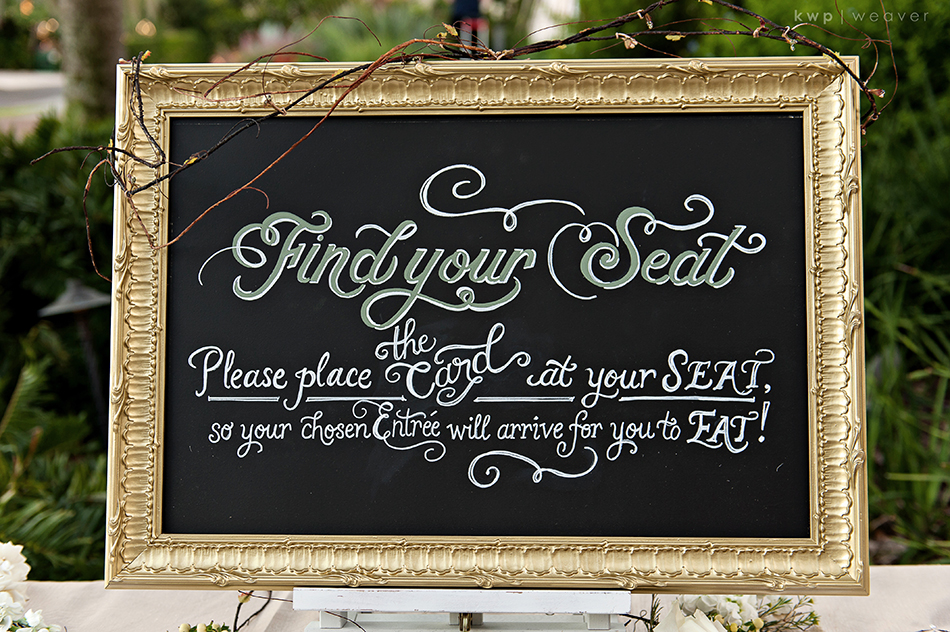 kwp | weaver
Find your Seat
Please place the Card at your SEAT,
so your chosen Entrée will arrive for you to EAT!